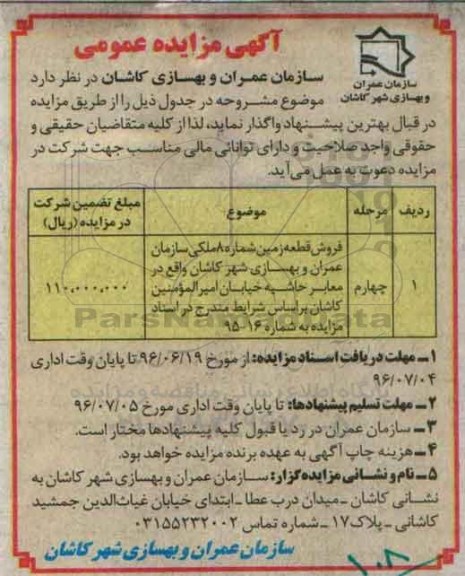 آگهی مزایده عمومی
سازمان عمران
وبهسازی شهر کاشان
سازمان عمران و بهسازی کاشان در نظر دارد
موضوع مشروحه در جدول ذیل را از طریق مزایده
در قبال بهترین پیشنهاد واگذار نماید، لذا از کلیه متقاضیان حقیقی و
حقوقی واجد صلاحیت و دارای توانائی مالی مناسب جهت شرکت در
مزایده دعوت به عمل می‌آید.
ردیف مرحله موضوع مبلغ تضمین شرکت
در مزایده (ریال)
فروش قطعه زمین شماره ۸ ملکی سازمان
عمران و بهسازی شهر کاشان واقع در
۱ چهارم معابر حاشیه خیابان امیرالمؤمنین ۱۱۰،۰۰۰،۰۰۰
کاشان براساس شرایط مندرج در اسناد
مزایده به شماره ۱۶-۹۵
ParsNamadData
۱ــ مهلت دریافت اسناد مزایده: از مورخ ۹۶/۰۶/۱۹ تا پایان وقت اداری
۹۶/۰۷/۰۴
۲ــ مهلت تسلیم پیشنهادها: تا پایان وقت اداری مورخ ۹۶/۰۷/۰۵
۳ــ سازمان عمران در رد یا قبول کلیه پیشنهادها مختار است.
۴ــ هزینه چاپ آگهی به عهده برنده مزایده خواهد بود.
۵ــ نام و نشانی مزایده‌گزار: سازمان عمران و بهسازی شهر کاشان به
نشانی کاشان ــ میدان درب عطا ــ ابتدای خیابان غیاث‌الدین جمشید
کاشانی ــ پلاک ۱۷ ــ شماره تماس ۰۳۱۵۵۲۳۲۰۰۲
سازمان عمران و بهسازی شهر کاشان
۱۰۸